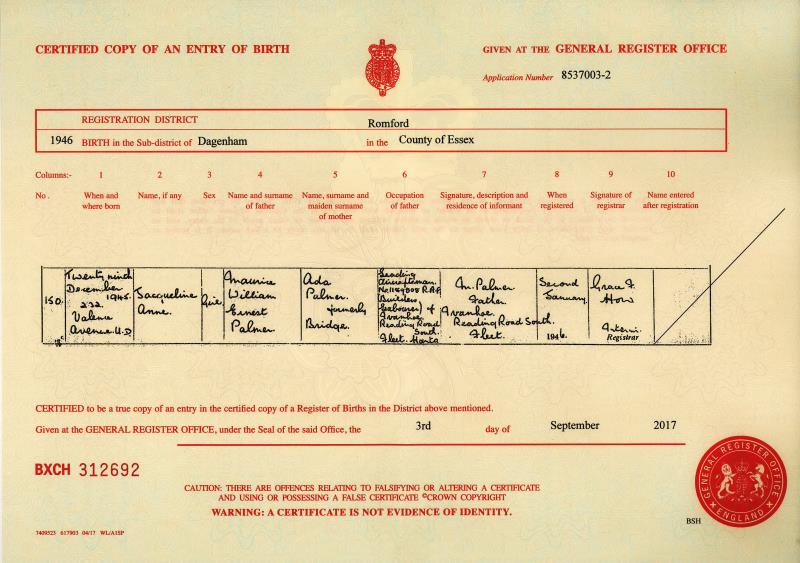 CERTIFIED COPY OF AN ENTRY OF BIRTH
GIVEN AT THE GENERAL REGISTER OFFICE
Application Number 8537003-2
REGISTRATION DISTRICT Romford
1946 BIRTH in the Sub-district of Dagenham in the County of Essex
Columns:- 1 2 3 4 5 6 7 8 9 10
No. When and where born Name, if any Sex Name and surname of father Name, surname and maiden surname of mother Occupation of father Signature, description and residence of informant When registered Signature of registrar Name entered after registration
150.
Twenty ninth
December
1945.
232
Valence
Avenue U.D
Jacqueline
Anne.
Girl
Maurice
William
Ernest
Palmer
Ada
Palmer.
formerly
Bridge.
Leading
Aircraftman.
R.A.F.
Builders
labourer) of
Ivanhoe
Reading Road
South.
Fleet. Hants
M. Palmer
Father.
Ivanhoe
Reading Road South.
Fleet.
Second
January.
1946.
Grace F.
How
Interim.
Registrar
CERTIFIED to be a true copy of an entry in the certified copy of a Register of Births in the District above mentioned.
Given at the GENERAL REGISTER OFFICE, under the Seal of the said Office, the 3rd day of September 2017
BXCH 312692
CAUTION: THERE ARE OFFENCES RELATING TO FALSIFYING OR ALTERING A CERTIFICATE
AND USING OR POSSESSING A FALSE CERTIFICATE ©CROWN COPYRIGHT
WARNING: A CERTIFICATE IS NOT EVIDENCE OF IDENTITY.
GENERAL REGISTER OFFICE
ENGLAND
BSH
7409523 617903 04/17 WL/A1SP